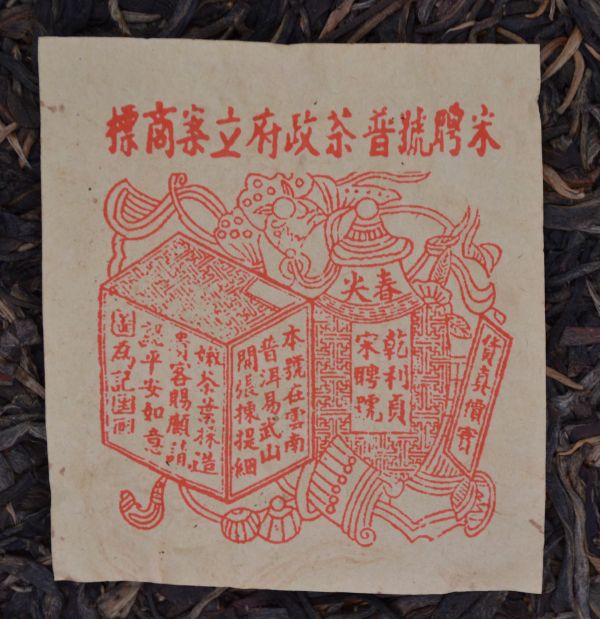 宋聘號普茶政府立案商標
本號在雲南
普洱易武山
開張揀提細
嫩茶葉採造
貴客賜顧請
認平安如意
圖為記
春尖
乾利貞
宋聘號
貨真價實